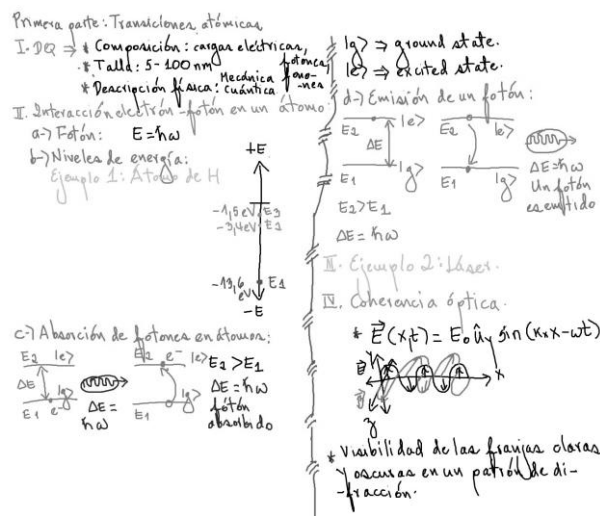 Primera parte: Transiciones atómicas
I. DQ ⇒ * Composición: cargas eléctricas, fotones, fono-nes
* Talla: 5-100nm
* Descripción física: Mecánica cuántica
II. Interacción electrón-fotón en un átomo:
a-) Fotón: E=ħω
b-) Niveles de energía:
Ejemplo 1: Átomo de H
+E
-1,5eV E3
-3,4eV E2
-13,6 eV E1
-E
c-) Absorción de fotones en átomos:
E2 |e>
ΔE
E1 e- |g>
ΔE = ħω
E2 e- |e>
E1 |g>
E2>E1
ΔE=ħω
fotón
absorbido
|g> ⇒ ground state.
|e> ⇒ excited state.
d-) Emisión de un fotón:
E2 |e>
ΔE
E1 |g>
E2 |e>
E1 |g>
ΔE=ħω
Un fotón
es emitido
E2>E1
ΔE=ħω
III. Ejemplo 2: Láser.
IV. Coherencia óptica.
* E(x,t) = E0 ûy sin(kx x-ωt)
y
x
z
* Visibilidad de las franjas claras
y oscuras en un patrón de di-
-fracción.